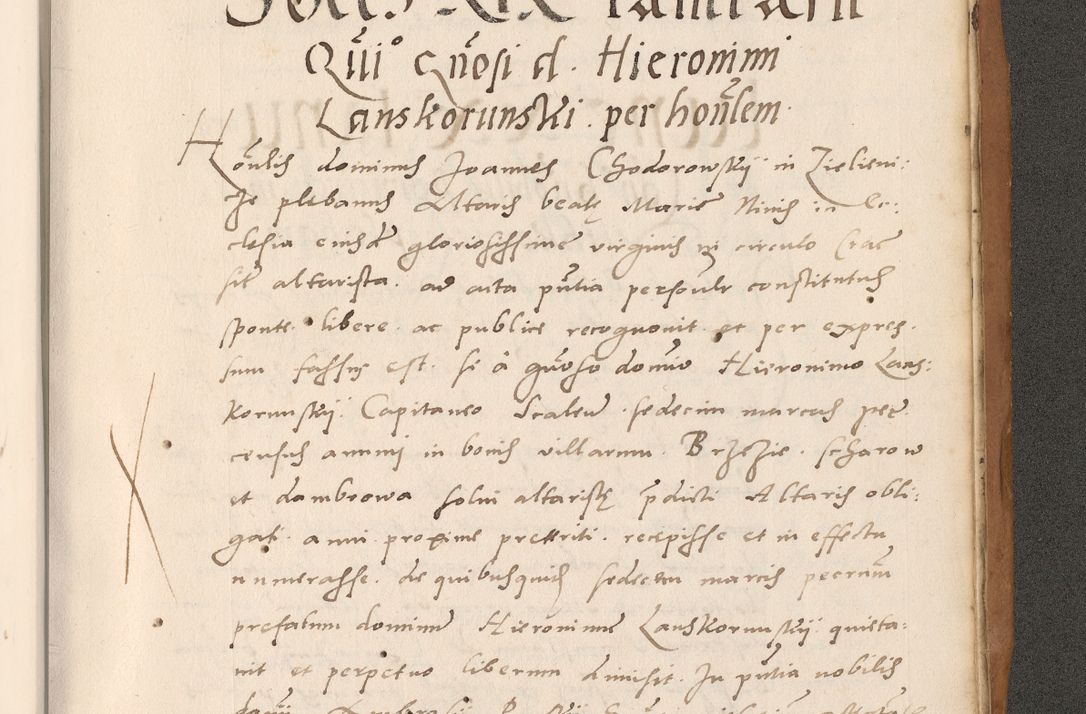 Qũi° Gñosi d. Hieronimi
Lanskorunskii. per honlem.
Honlis dominus Joannes Chodorowskÿ in Zielieni:
ze plebanus Altaris beatę Marie Nivis in Ec:
clesia eiusdẽ gloriosissime virginis in circulo Crac
sitẽ altarista. ad acta pñtia personlr constitutus
sponte. libere. ac publice recognovit et per expres.
sum fassus est. se a gñoso domino Hieronimo Lans:
korunskÿ. Capitaneo Scalen. sedecim marcas pec
census annui in bonis villarum. Brzezie. scharow
et dambrowa solvi altaristę p̃dicti Altaris obli:
gati. anni proxime preteriti. recepisse et in effectu
numerasse. de quibusquidẽ sedecem marcis pecuniarum
prefatum dominum Hieronimum Lanskorunskÿ quieta:
vit et perpetuo liberum dimisit. In pñtia nobilis